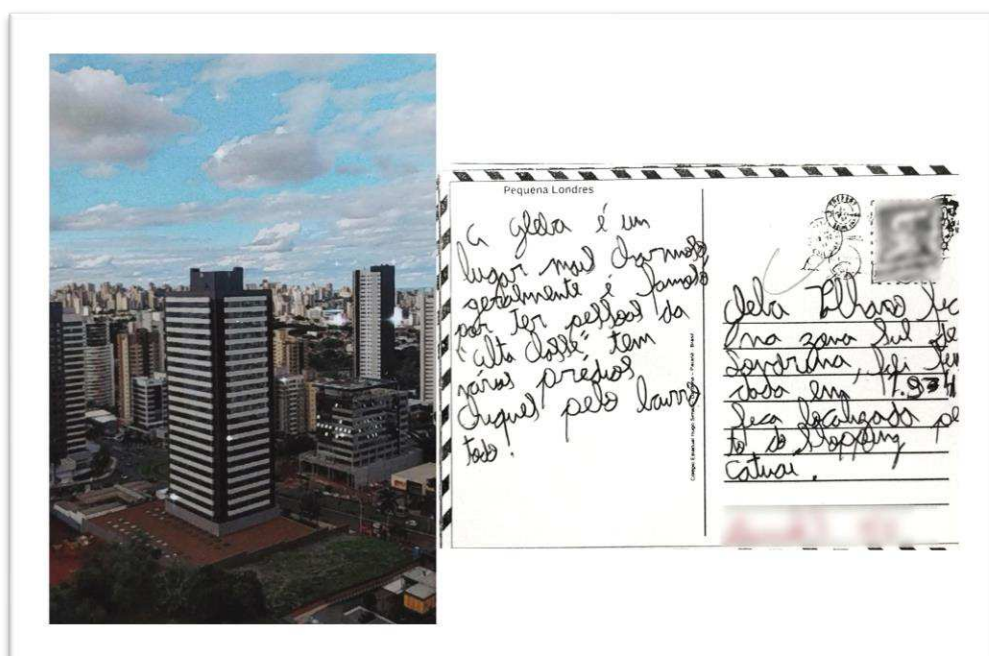 Pequena Londres
A gleba é um
lugar mais charmoso,
geralmente é famoso
por ter pessoas da
"alta classe", tem
vários predios
chiques pelo bairro
todo.
Gleba Palhano fica
na zona Sul de
Londrina, foi
dada em 1.934
fica localizada pe
to do Shopping
Catuai.